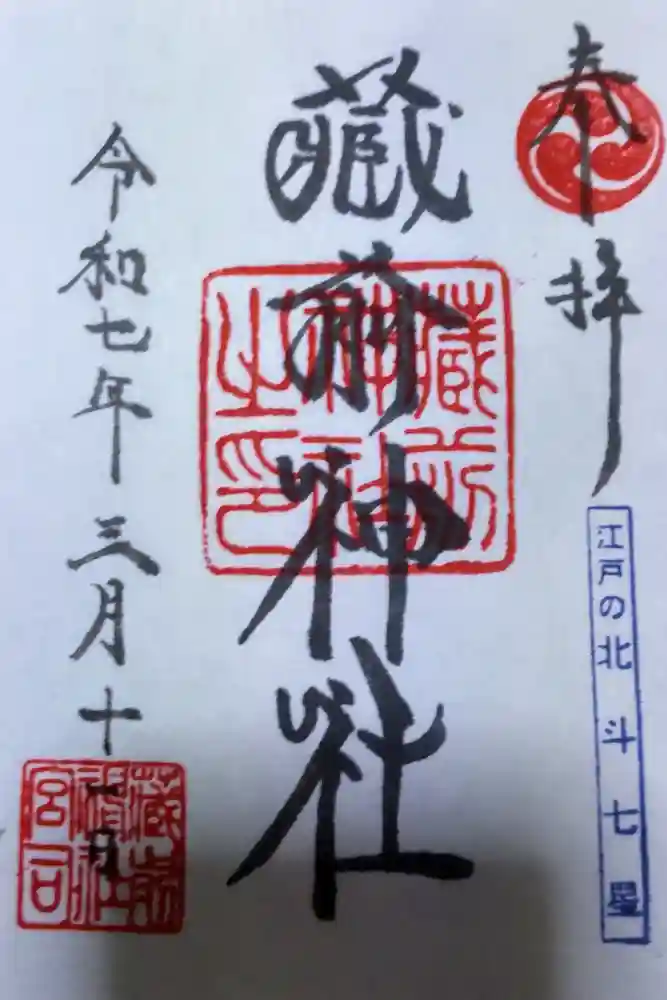 奉拝
江戸の北斗七星
藏前神社
蔵前神社之印
令和七年三月十一日
蔵前神社宮司